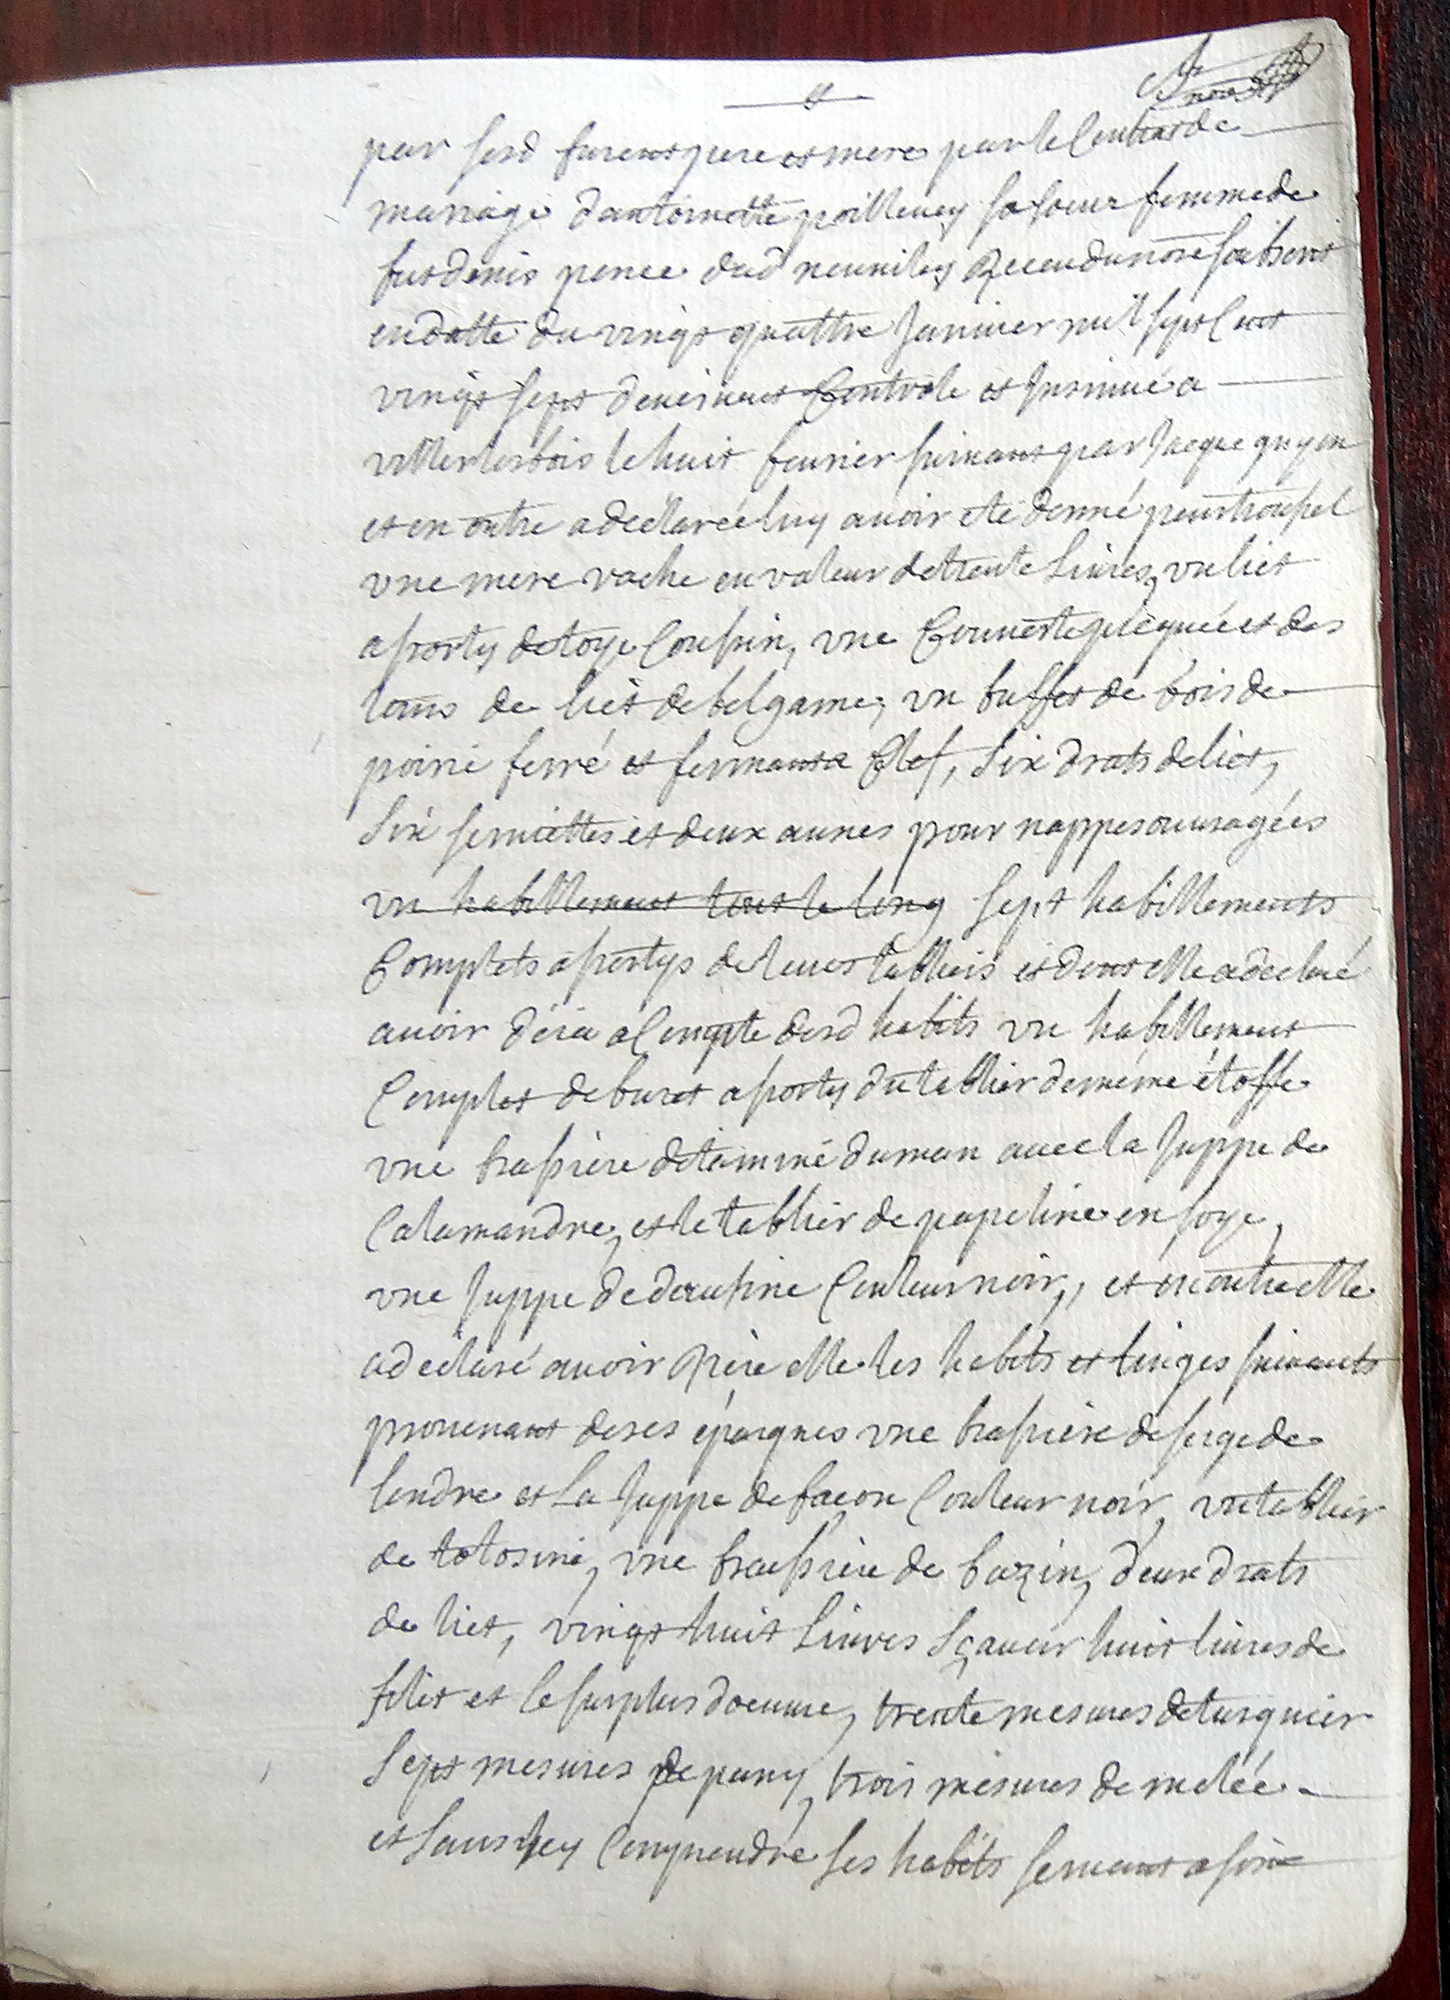 par sesd furent pere et mere par le Contrat de
mariage d'antoinette poilleuey sa soeur femme de
fut denis pence dud neuuiley Receu du nore soubsent
en datte du vingt quattre Januier mil sept Cent
vingt sept deuëment Controle et Jnsinué a
villerlesbois le huit feurier suiuant par Jacque guyon
et en outre a declareé luy auoir eté donné pour troussel
vne mere vache en valeur de trente Liures, vn lict
assorty de toye Coussin, vne Couuerte piequée et des
tours de lict de belgame, vn buffet de bois de
poirié ferré et fermant a Clef, Six drats de lict,
Six seruiettes et deux aunes pour nappes ouuragées
vn habillement tout le long sept habillements
Complets assortys de leurs tabliers et dont elle a declaré
auoir déia a Compte desd habits vn habillement
Complet de buret assorty du tablier de méme étoffe
vne brassiere d'etaminé duman auec la Juppe de
Calamandre, et le tablier de papeline en soye,
vne Juppe de daufine Couleur noir,, et en outre elle
a declaré auoir Riere elle les habits et linges suiuants
prouenant de ses épargnes vne brassiere de serge de
londre et La Juppe de facon Couleur noir, vn tablier
de totosine, vne brassiere de bazin, deux drats
de lict, vingt huit Liures Sçauoir huit liures de
filet et le surplus d'oeuure, trente mesures de turquier
Sept mesures de pany, trois mésures de melée
et sans hey Comprendre ses habits seruant a son